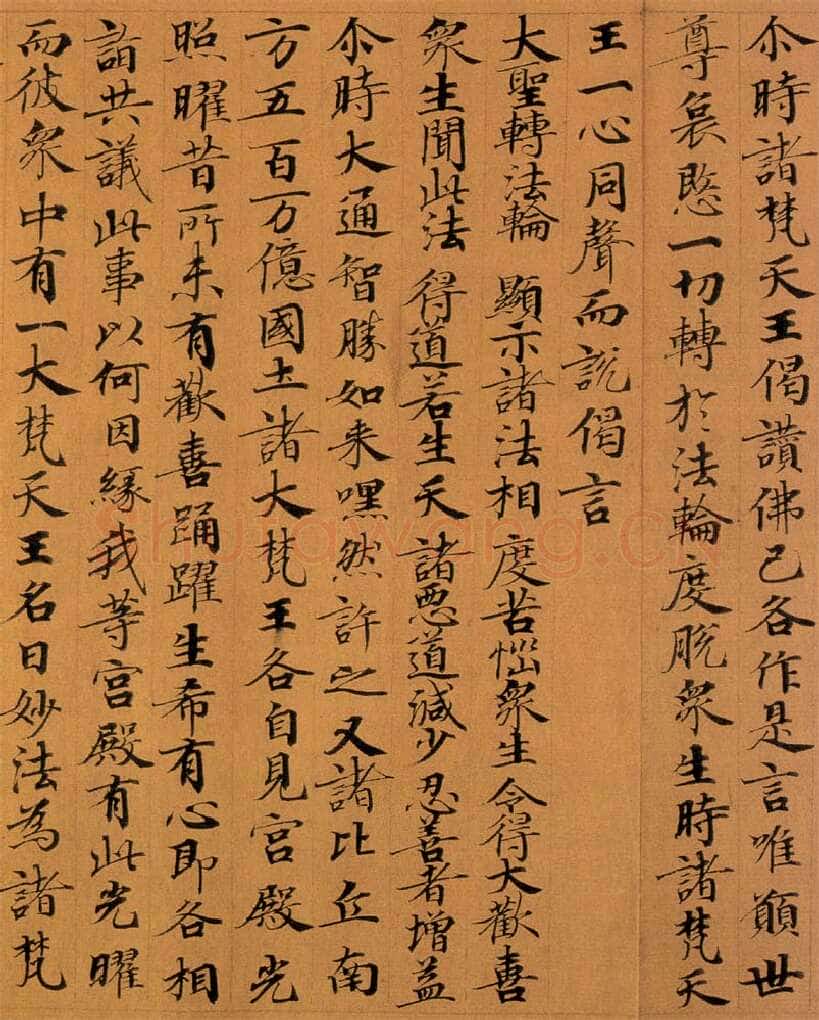 尒時諸梵天王偈讃佛已各作是言唯願世
尊哀愍一切轉於法輪度脫衆生時諸梵天
王一心同聲而說偈言
大聖轉法輪 顯示諸法相 度苦惱衆生 令得大歡喜
衆生聞此法 得道若生天 諸惡道減少 忍善者增益
尒時大通智勝如来嘿然許之又諸比丘南
方五百万億國土諸大梵王各自見宮殿光
照曜昔所未有歡喜踊躍生希有心即各相
詣共議此事以何因緣我等宮殿有此光曜
而彼衆中有一大梵天王名曰妙法為諸梵
shufawang.cn